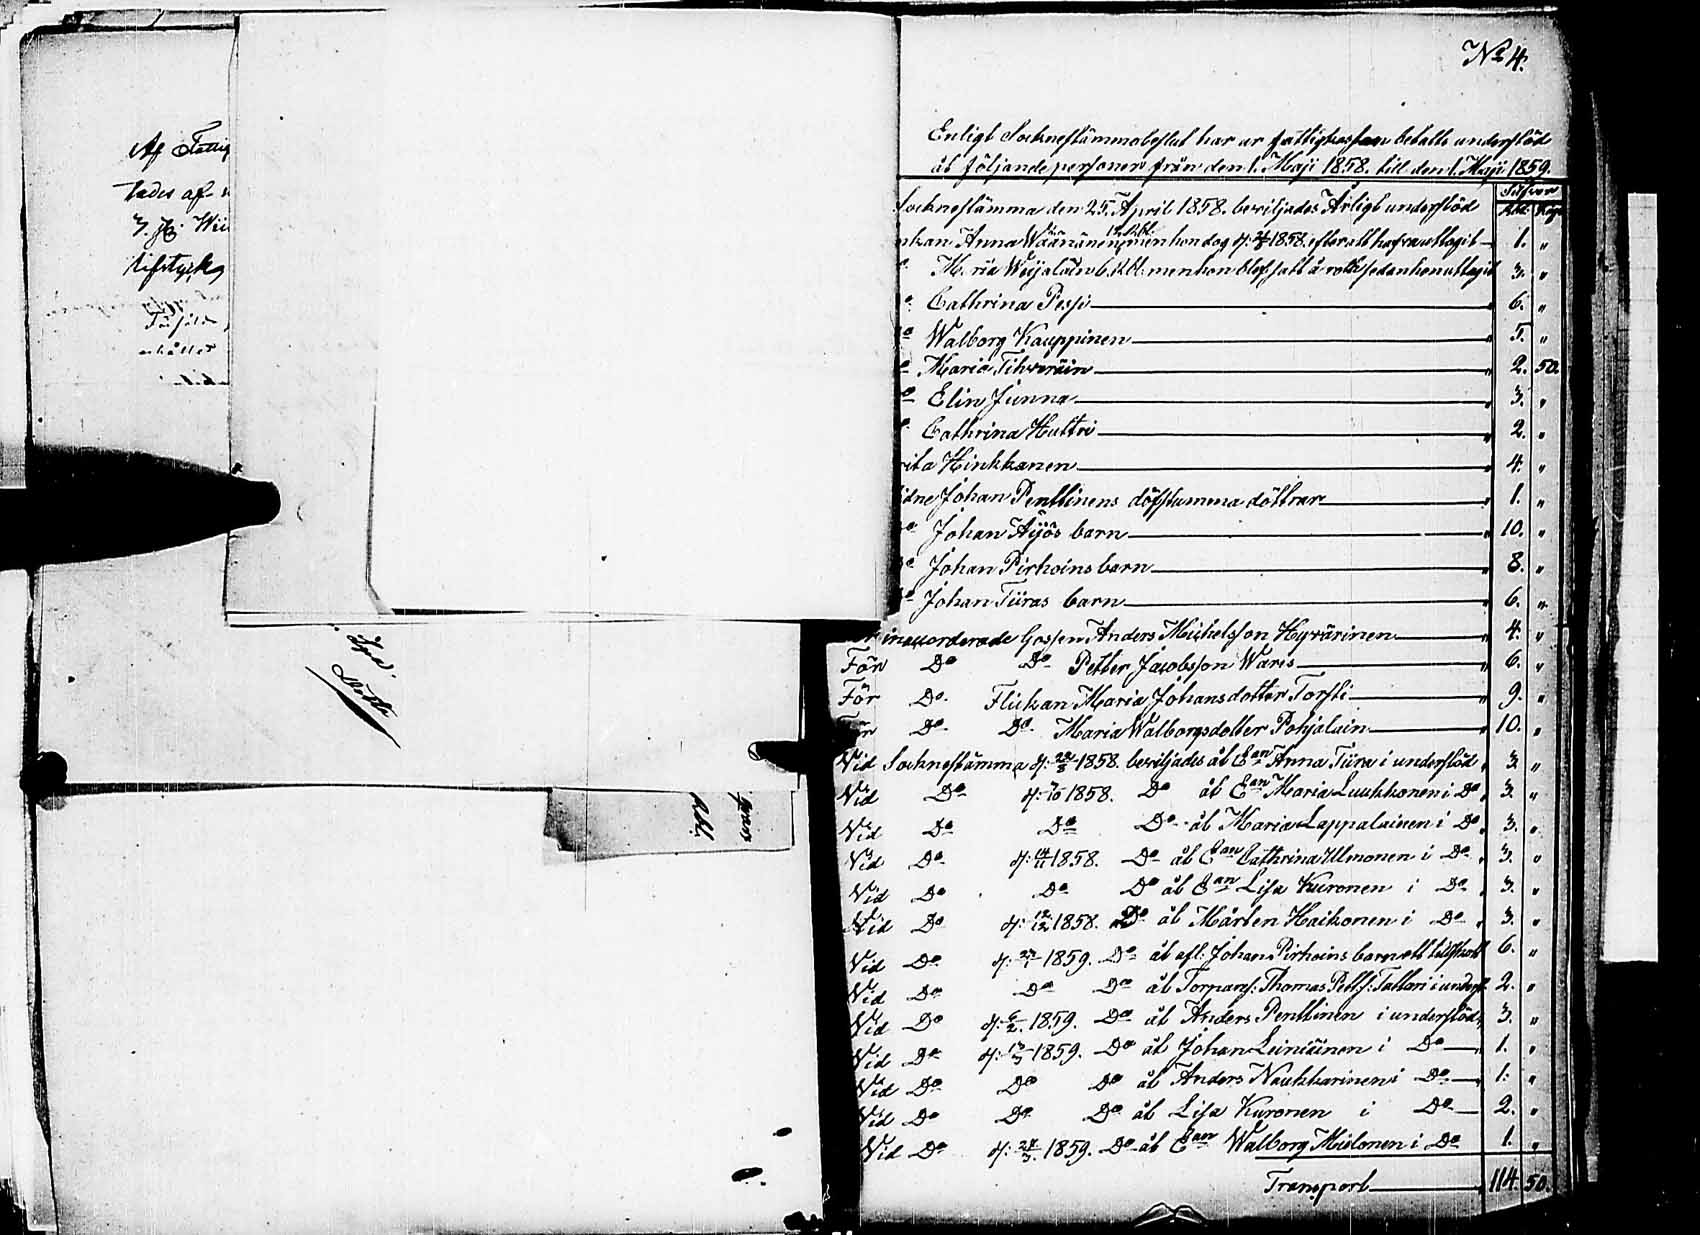 Af Fattig
tades af
lifstycke
erhållet
No 4.
Enligt Sockneståmmobeslut har ur fattigkassan betalts understöd
åt följande personer från den 1. Maji 1858. till den 1. Maji 1859.
Silfver
Rbl. Kop.
Socknestämma den 25. April 1858. beviljades Årligt understöd
nkan Anna Wäänänen men hon dog 1858. efter att hafva uttagit 1. "
Maria Weijalain 6. Rbl. men hon blef satt å rote sedan hon uttagit 3. "
Do Cathrina Pessi 6. "
Do Walborg Kauppinen 5. "
Do Maria Tihveräin 2. 50.
Do Elin Junna 3. "
Do Cathrina Huttri 2. "
rita Hinkkanen 4. "
idne Johan Penttinens döfstumma döttrar 1. "
Do Johan Äijös barn 10. "
Do Johan Pirhoins barn 8. "
Do Johan Tiiras barn 6. "
inackorderade Gossen Anders Michelsson Hyvärinen 4. "
För Do Do Petter Jacobsson Wares 6. "
För Do Flickan Maria Johansdotter Torfti 9. "
För Do Do Maria Walborgsdotter Pohjalain 10. "
Vid Socknestämma d: 24/5 1858. beviljades åt Ean Anna Tiira i understöd 3. "
Vid Do 1858. Do åt Ean Maria Luukkonen i Do 3. "
Vid Do Do Do åt Maria Lappalainen i Do 3. "
Vid Do d: 14/11 1858. Do åt Ean Cathrina Ulmonen i Do 3. "
Vid Do Do Do åt Ean Lisa Kuronen i Do 3. "
Vid Do d: 12/12 1858. Do åt Mårten Haikonen i Do 3. "
Vid Do 1859. Do åt afl. Johan Pirhoins barn ett tillskott 6. "
Vid Do Do Do åt Torparen Thomas Pett:s: Tattari i underst. 2. "
Vid Do d: 6/2 1859. Do åt Anders Penttinen i understöd 3. "
Vid Do d: 13/3 1859. Do åt Johan Leiniäinen i Do 1. "
Vid Do Do Do åt Anders Naukkarinen i Do 1. "
Vid Do Do Do åt Lisa Kuronen i Do 2. "
Vid Do d: 24/3 1859. Do åt Ean Walborg Mielonen i Do 1. "
Transport 114. 50.